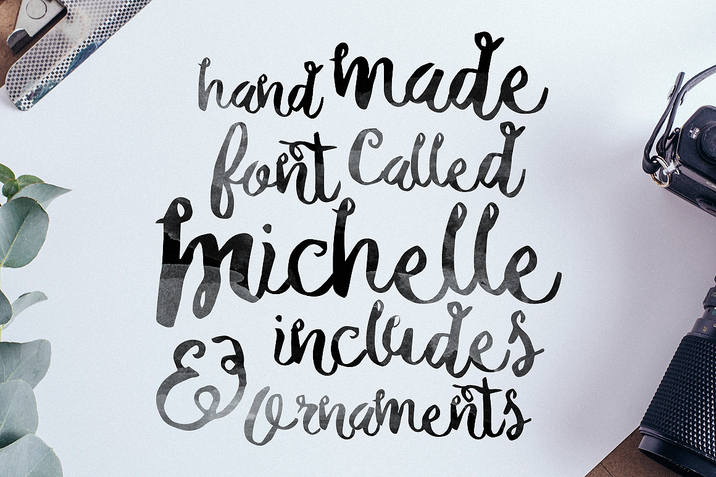 hand made
font Called
michelle
includes
& Ornaments